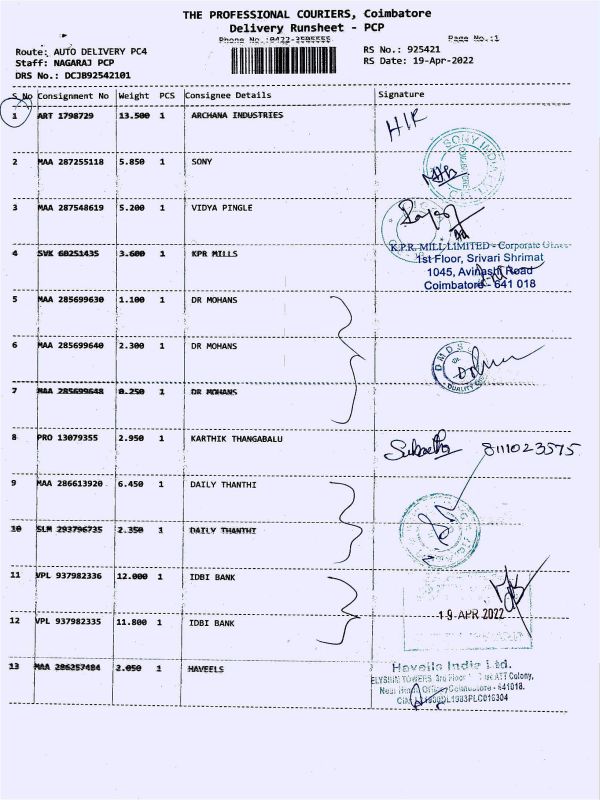 THE PROFESSIONAL COURIERS, Coimbatore
Delivery Runsheet - PCP
Phone No.:0422-3505555
Page No.:1
Route: AUTO DELIVERY PC4
RS No.: 925421
Staff: NAGARAJ PCP
RS Date: 19-Apr-2022
DRS No.: DCJ892542101
S No Consignment No Weight PCS Consignee Details Signature
1 ART 1798729 13.500 1 ARCHANA INDUSTRIES
2 MAA 287255118 5.850 1 SONY
SONY INDIA
COIMBATORE
3 MAA 287548619 5.200 1 VIDYA PINGLE
4 SVK 60251435 3.600 1 KPR MILLS
K.P.R. MILL LIMITED - Corporate Office
1st Floor, Srivari Shrimat
1045, Avinashi Road
Coimbatore - 641 018
5 MAA 285699630 1.100 1 DR MOHANS
6 MAA 285699640 2.300 1 DR MOHANS
DMDS
QUALITY
7 MAA 285699648 0.250 1 DR MOHANS
8 PRO 13079355 2.950 1 KARTHIK THANGABALU
8111023575
9 MAA 286613920 6.450 1 DAILY THANTHI
10 SLM 293796735 2.350 1 DAILY THANTHI
11 VPL 937982336 12.000 1 IDBI BANK
19 APR 2022
12 VPL 937982335 11.800 1 IDBI BANK
13 MAA 286257484 2.050 1 HAVEELS
Havells India Ltd.
ELYSIUM TOWERS 3rd Floor ATT Colony,
Office, Coimbatore - 641018.